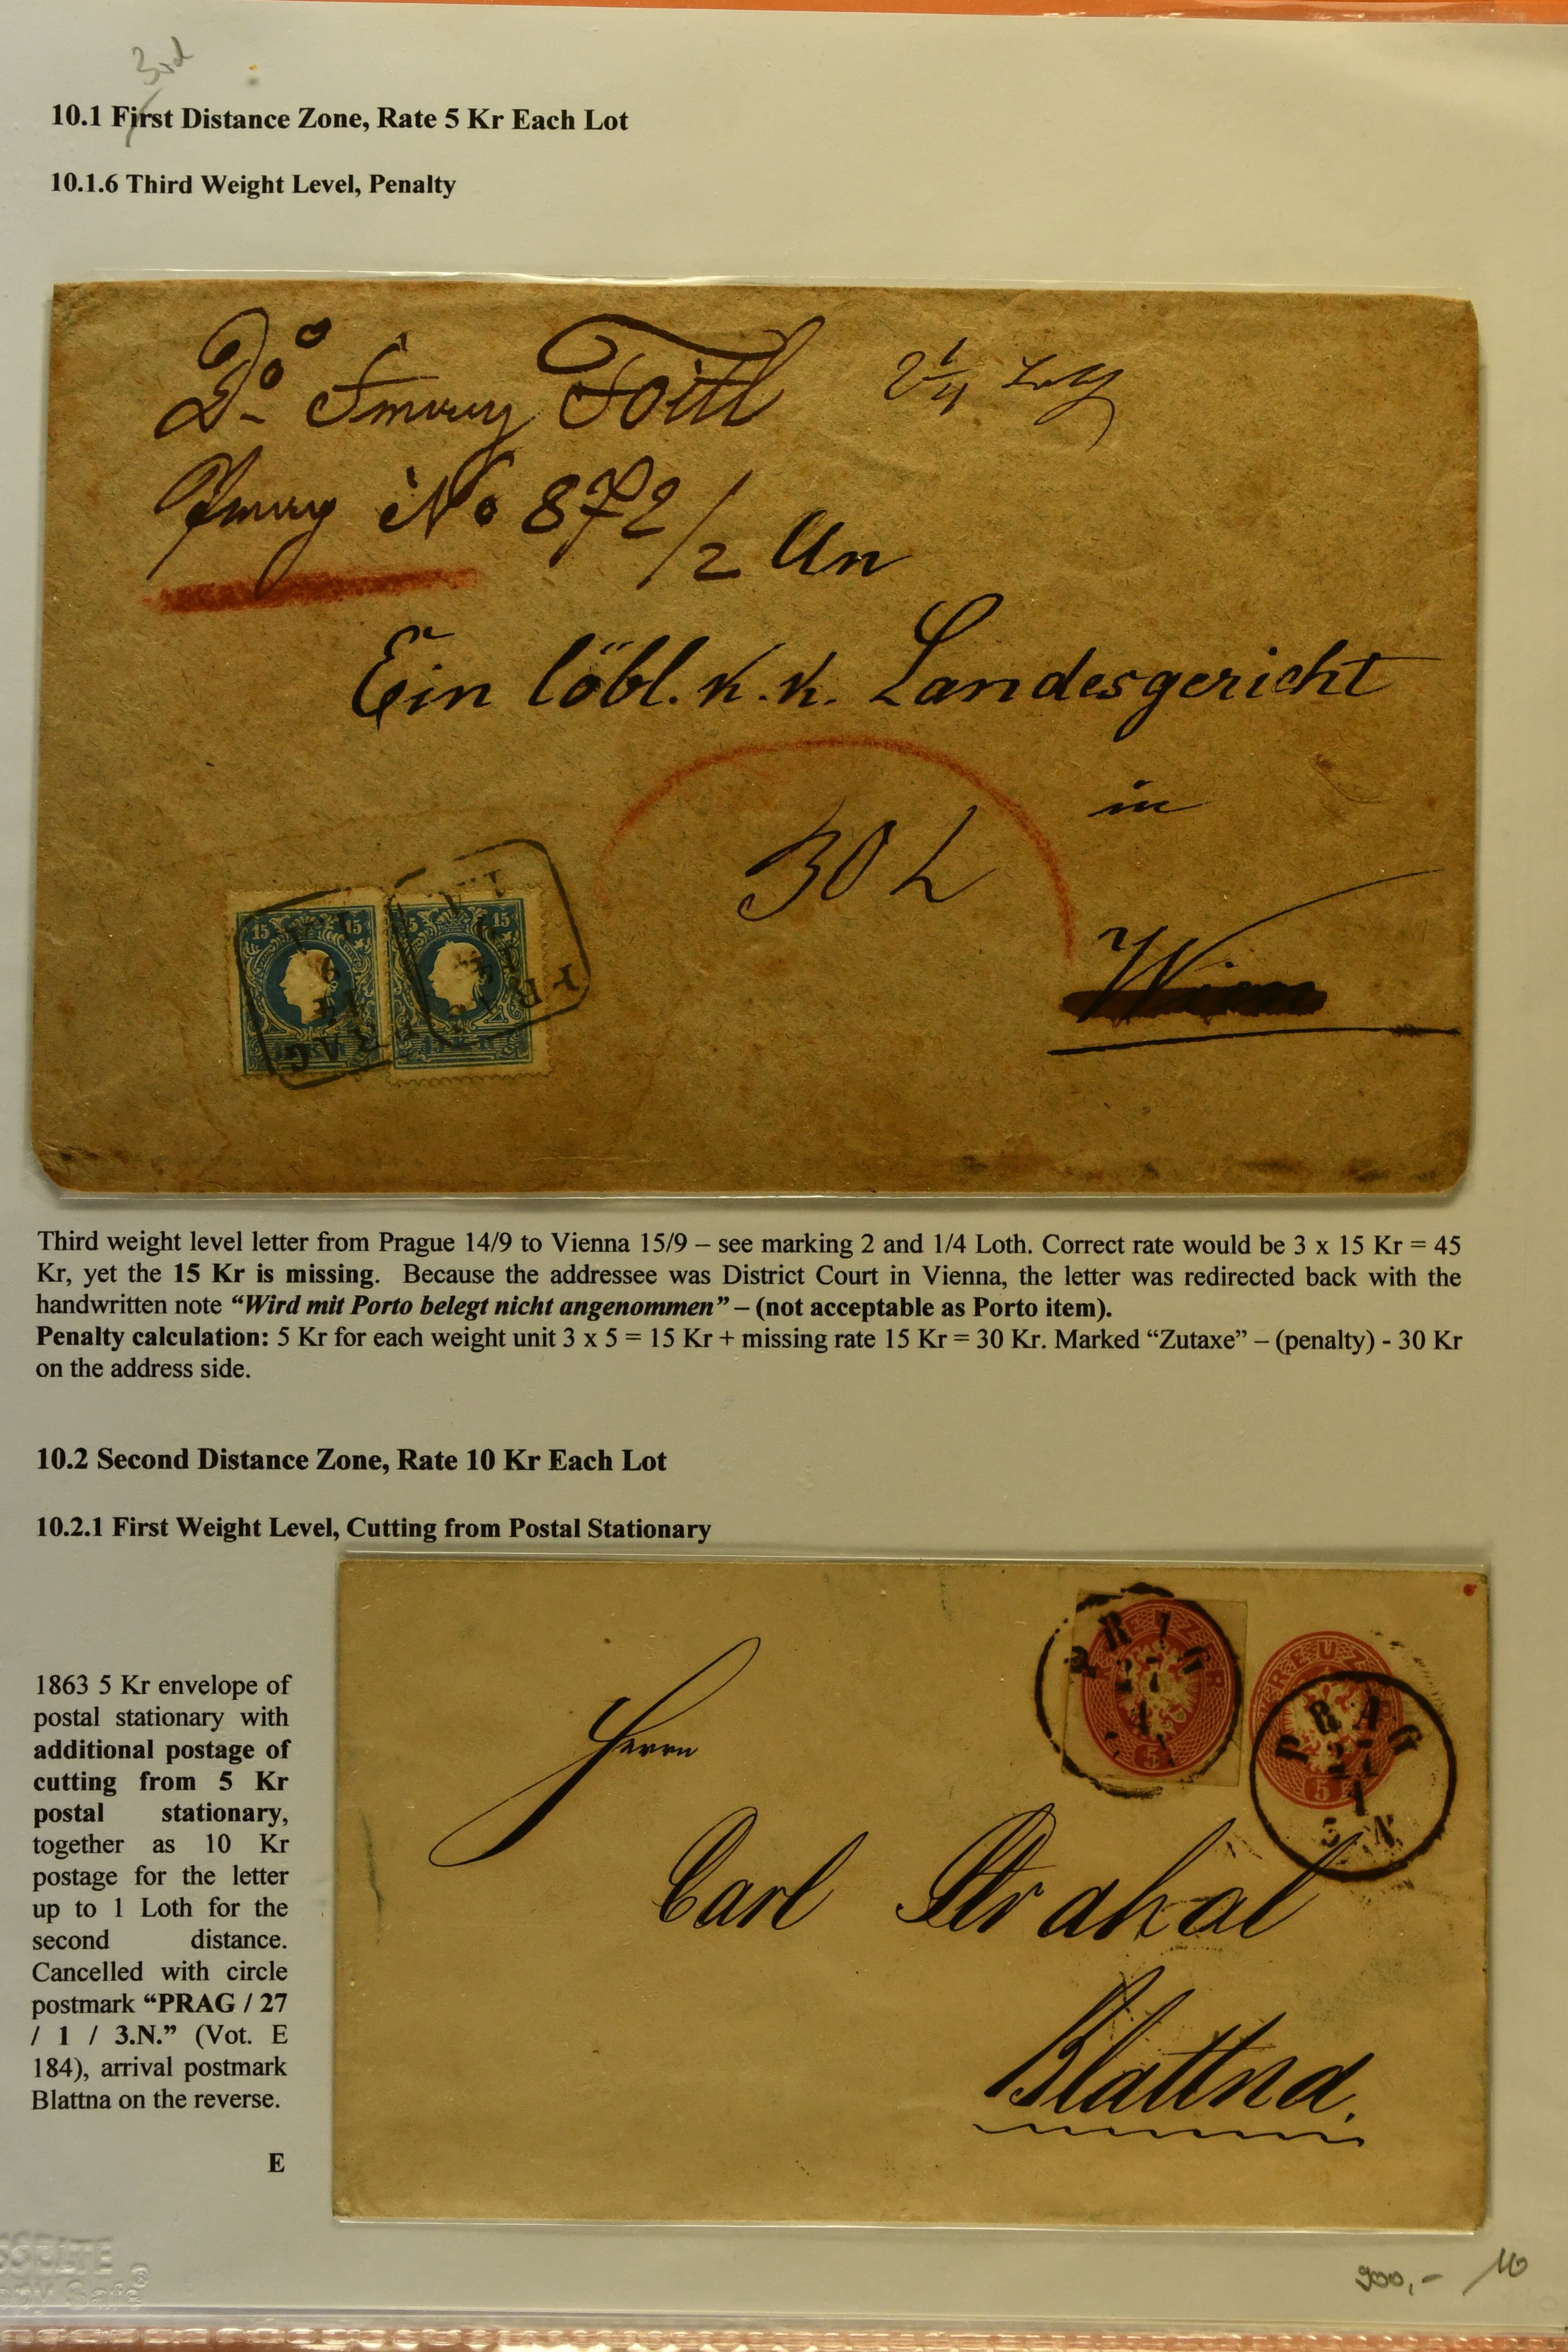 3rd
10.1 First Distance Zone, Rate 5 Kr Each Lot
10.1.6 Third Weight Level, Penalty
2 1/4
No 872/2 An
Ein löbl. k. k. Landesgericht
in
30
Wien
15 15
15 15
PRAG
Third weight level letter from Prague 14/9 to Vienna 15/9 – see marking 2 and 1/4 Loth. Correct rate would be 3 x 15 Kr = 45
Kr, yet the 15 Kr is missing. Because the addressee was District Court in Vienna, the letter was redirected back with the
handwritten note “Wird mit Porto belegt nicht angenommen” – (not acceptable as Porto item).
Penalty calculation: 5 Kr for each weight unit 3 x 5 = 15 Kr + missing rate 15 Kr = 30 Kr. Marked “Zutaxe” – (penalty) - 30 Kr
on the address side.
10.2 Second Distance Zone, Rate 10 Kr Each Lot
10.2.1 First Weight Level, Cutting from Postal Stationary
1863 5 Kr envelope of
postal stationary with
additional postage of
cutting from 5 Kr
postal stationary,
together as 10 Kr
postage for the letter
up to 1 Loth for the
second distance.
Cancelled with circle
postmark “PRAG / 27
/ 1 / 3.N.” (Vot. E
184), arrival postmark
Blattna on the reverse.
E
PRAG
27
1
5
PRAG
27
1
3 N
5
Herrn
Carl
Blattna.
900,- /10